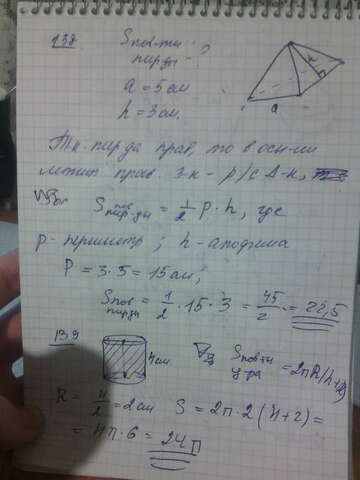 138
Sпов-ти
пирды - ?
a = 5 см
h = 3 см.
a
Т.к. пирда прав, то в осн-ии
лежит прав. 3-к - р/с Δ-к,
Sпов пирды = 1/2 p · h, где
p - периметр ; h - апофема
P = 3 · 5 = 15 см ;
Sпов пирды = 1/2 · 15 · 3 = 45/2 = 22,5
139
4 см.
Sпов-ти ц-ра = 2πR(h+R)
R = 4/2 = 2 см S = 2π · 2 (4+2) =
= 4π · 6 = 24π